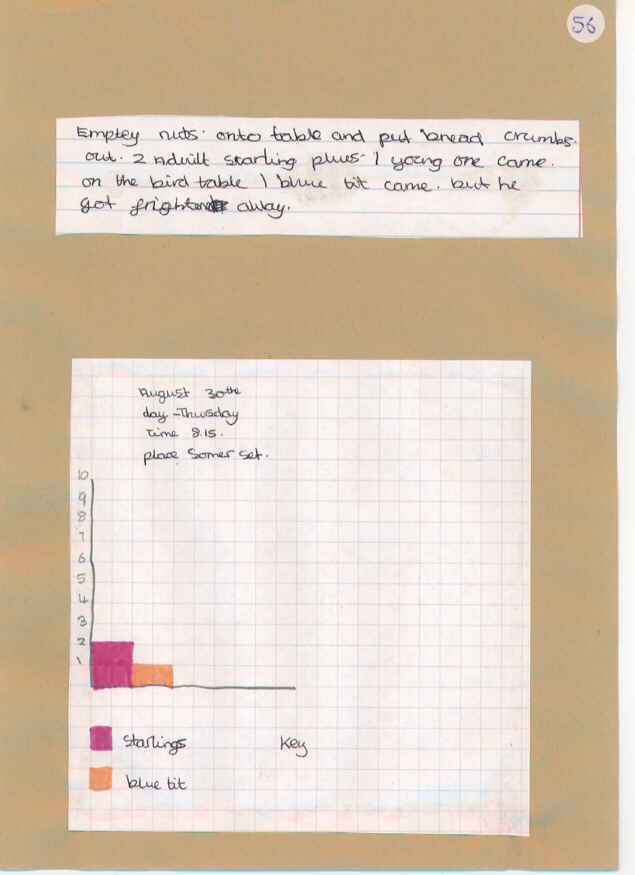 56
Emptey nuts. onto table and put bread crumbs.
out. 2 Aduilt starling plus- 1 young one came.
on the bird table 1 blue tit came. but he
got frightend away.
August 30the
day -Thusday
Time 8.15.
place Somer set.
10
9
8
7
6
5
4
3
2
1
starlings
Key
blue tit